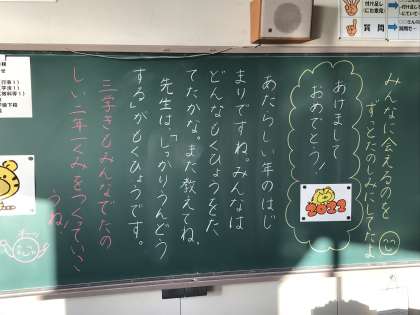 みんなに会えるのを
ずっとたのしみにしてたよ
あけまして
おめでとう!
2022
あたらしい年のはじ
まりですね。みんなは
どんなもくひょうをた
てたかな。また教えてね。
先生は「しっかりうんどう
する」がもくひょうです。
三学きもみんなでたの
しい二年1くみをつくていこ
うね!
質問